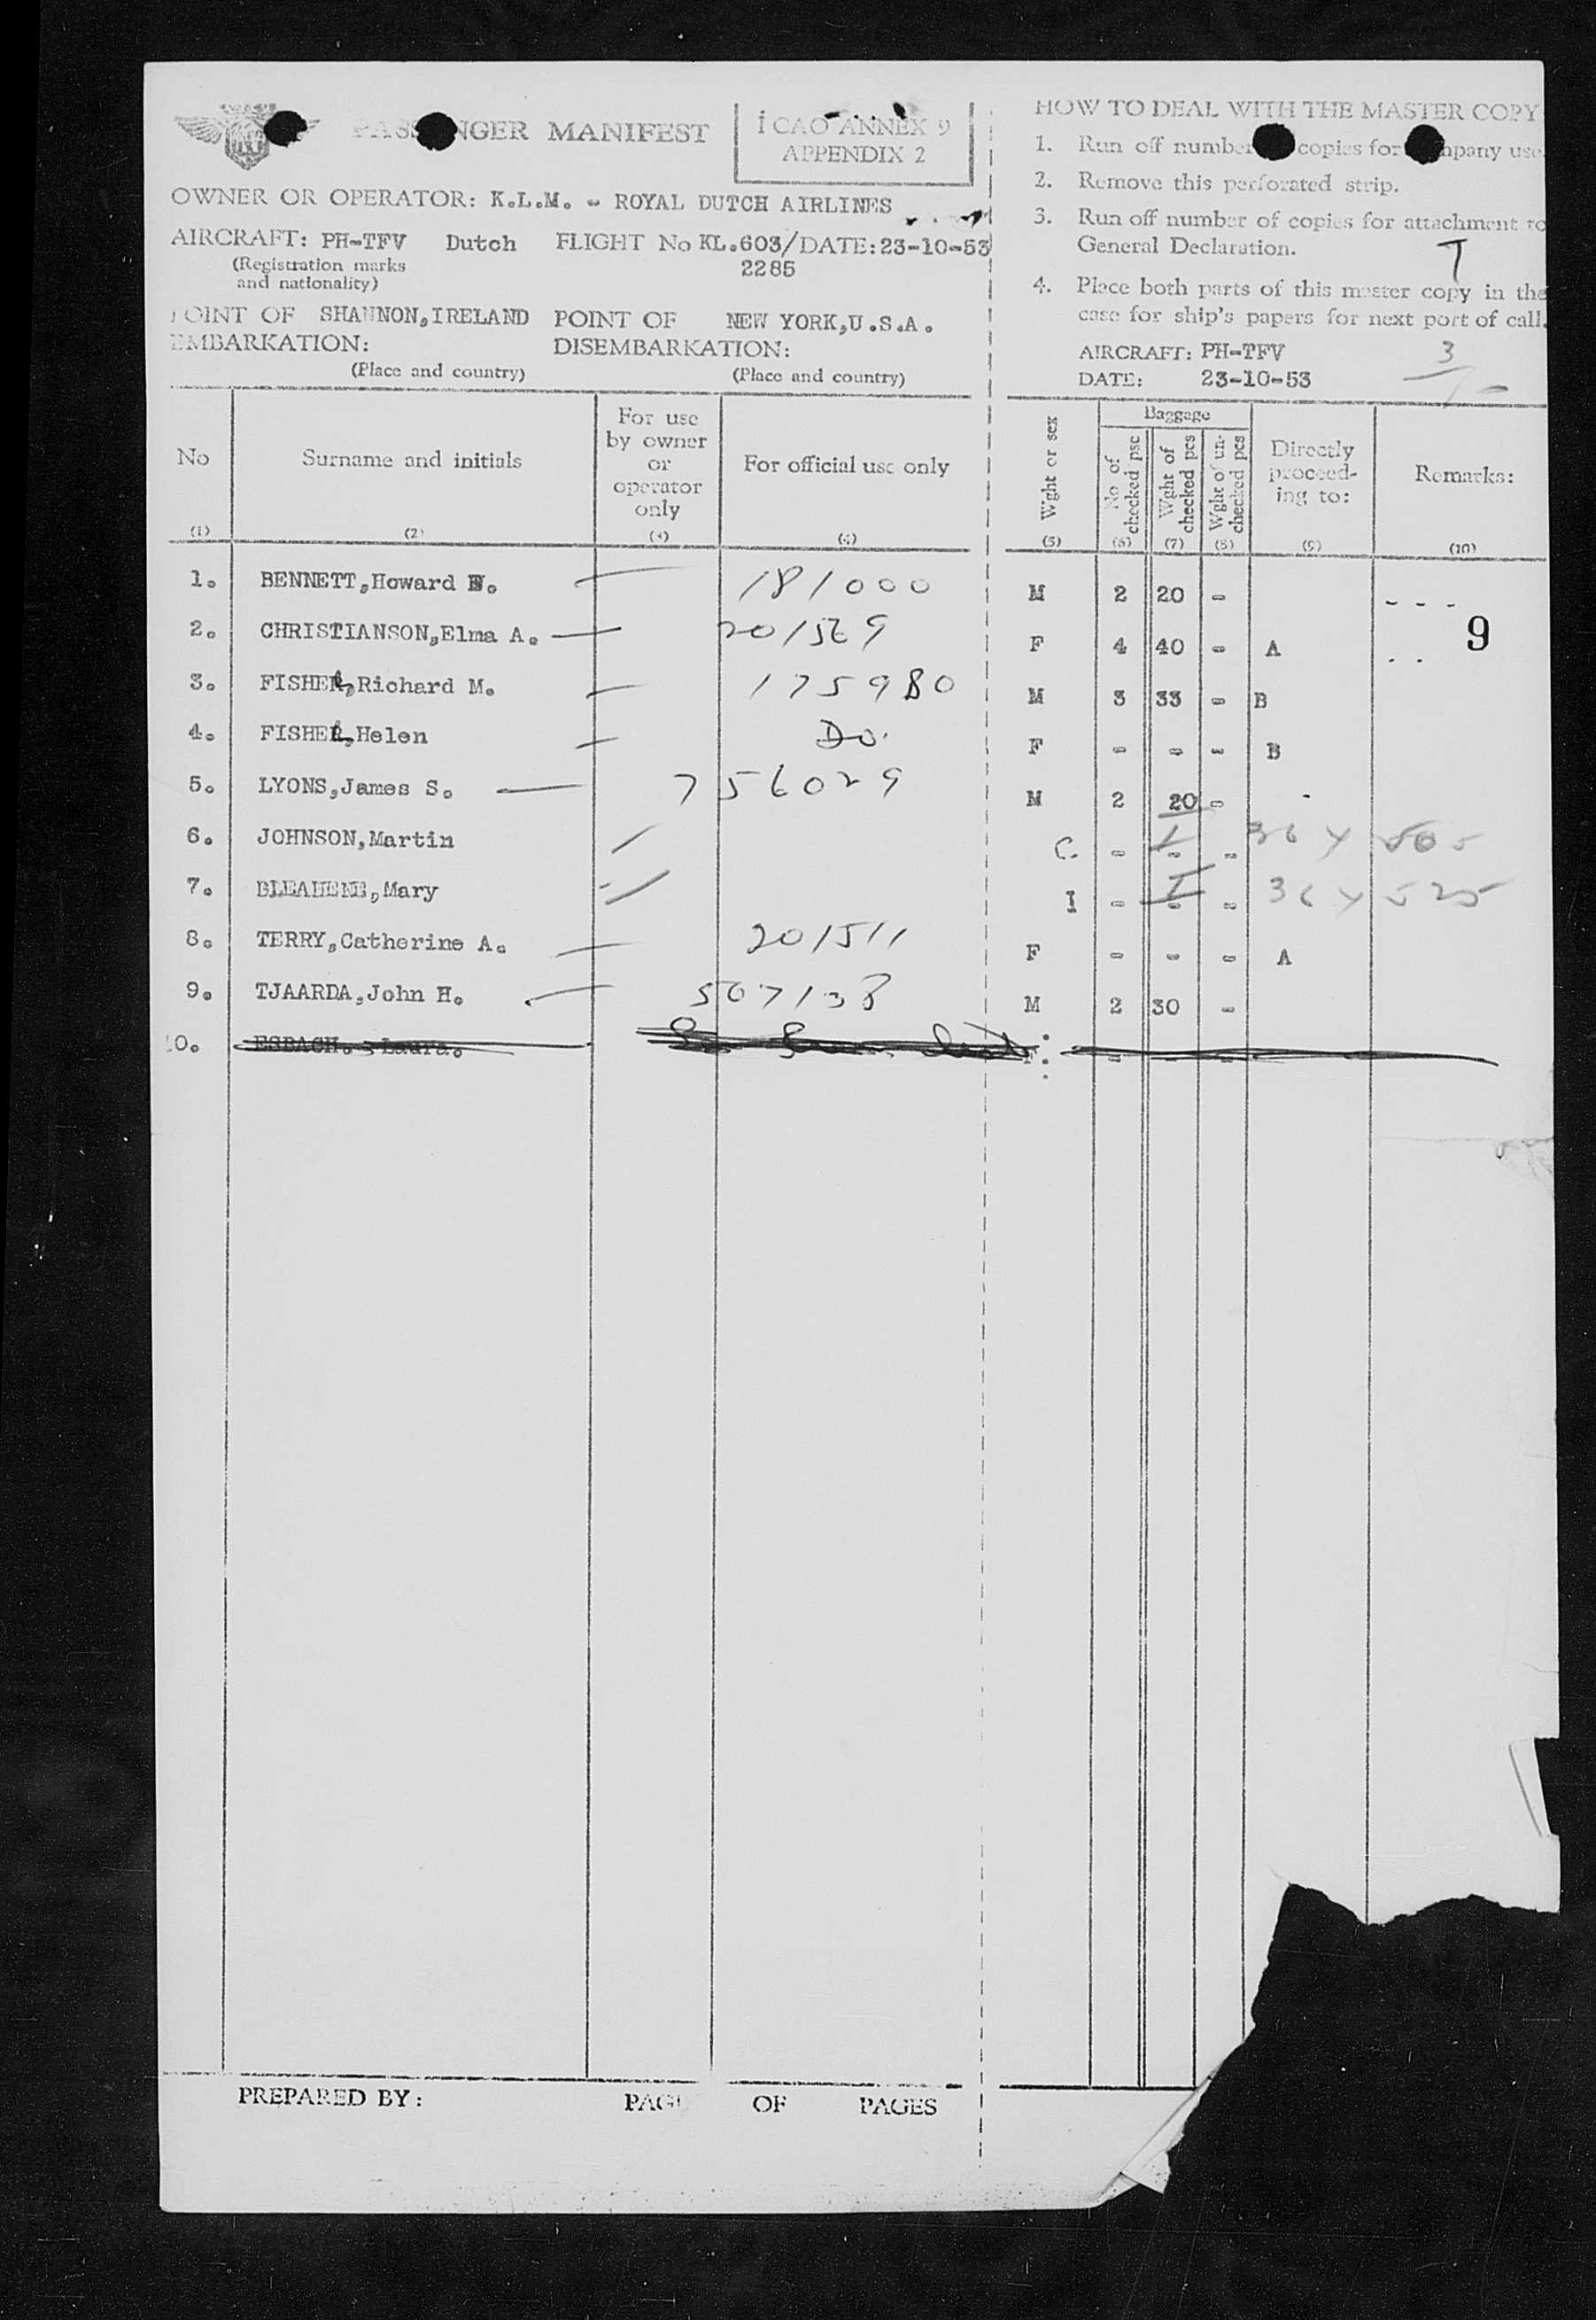 PASSENGER MANIFEST
ICAO ANNEX 9
APPENDIX 2
OWNER OR OPERATOR: K.L.M. - ROYAL DUTCH AIRLINES
AIRCRAFT: PH-TFV Dutch FLIGHT No KL.603/DATE:23-10-53
(Registration marks 2285
and nationality)
POINT OF SHANNON,IRELAND POINT OF NEW YORK,U.S.A.
EMBARKATION: DISEMBARKATION:
(Place and country) (Place and country)
HOW TO DEAL WITH THE MASTER COPY
1. Run off number copies for company use.
2. Remove this perforated strip.
3. Run off number of copies for attachment to
General Declaration.
T
4. Place both parts of this master copy in the
case for ship's papers for next port of call.
AIRCRAFT: PH-TFV 3
DATE: 23-10-53
No Surname and initials For use by owner or operator only For official use only Wght or sex Baggage No of checked psc Wght of checked pcs Wght of un-checked pcs Directly proceed-ing to: Remarks:
(1) (2) (3) (4) (5) (6) (7) (8) (9) (10)
1. BENNETT,Howard 181000 M 2 20 -
2. CHRISTIANSON,Elma A. 201569 F 4 40 - A 9
3. FISHER,Richard M. 175980 M 3 33 - B
4. FISHER,Helen Do. F - - - B
5. LYONS,James S. 756029 M 2 20 -
6. JOHNSON,Martin C. - - - 36 Y 505
7. Mary I - - - 36 Y 525
8. TERRY,Catherine A. 201511 F - - - A
9. TJAARDA,John H. 507138 M 2 30 -
10. ESBACH. Laura. F - - -
PREPARED BY: PAGE OF PAGES